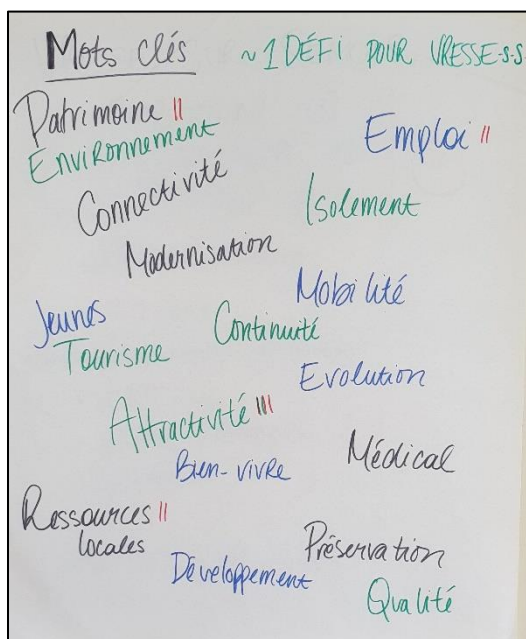 Mots clés ~ 1 DÉFI POUR VRESSE-S-S
Patrimoine ||
Environnement
Emploi ||
Connectivité
Isolement
Modernisation
Mobilité
Jeunes
Continuité
Tourisme
Evolution
Attractivité |||
Bien-vivre
Médical
Ressources ||
locales
Préservation
Développement
Qualité